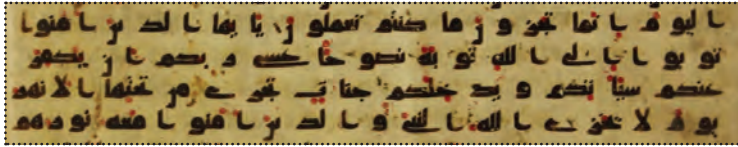 اليوم انما تجزون ما كنتم تعملون يايها الذين امنوا
توبوا الى الله توبة نصوحا عسى ربكم ان يكفر
عنكم سياتكم ويدخلكم جنات تجري من تحتها الانهر
يوم لا يخزي الله النبي والذين امنوا معه نورهم